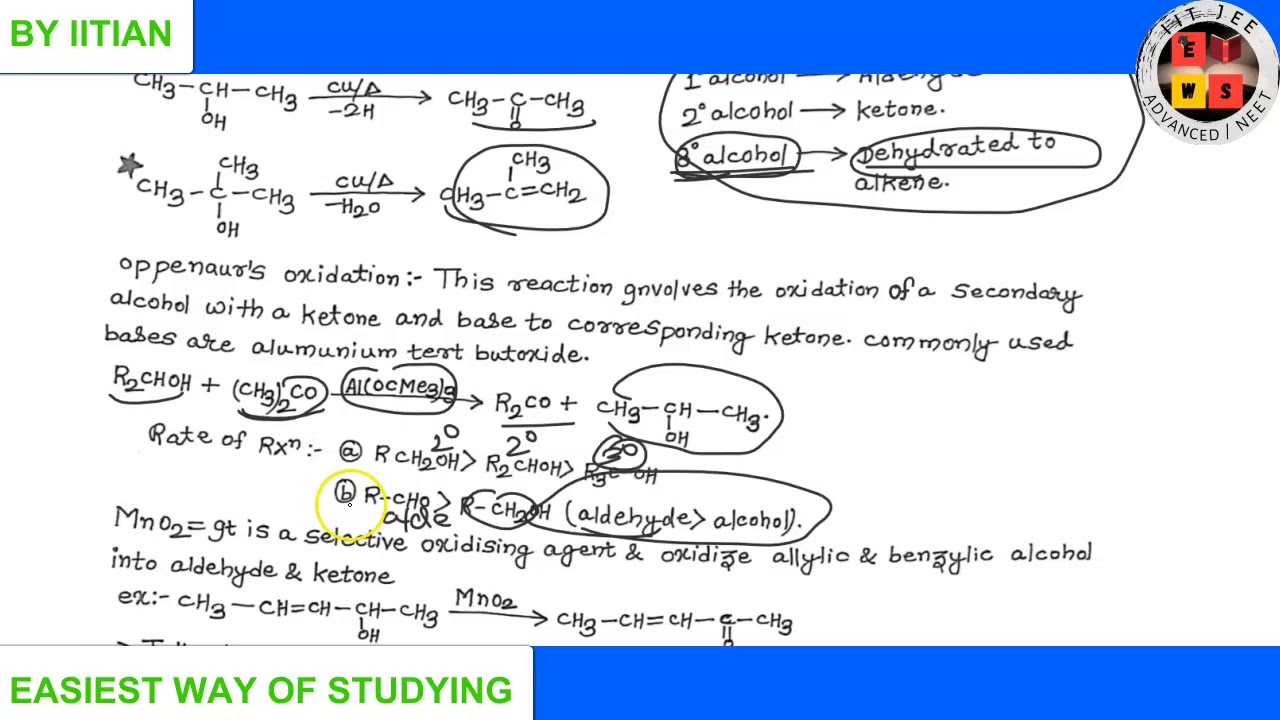 BY IITIAN
IIT JEE
E
W S
ADVANCED / NEET
CH3-CH-CH3 CU/Δ → CH3-C-CH3
OH -2H O
1° alcohol → Aldehyde
2° alcohol → ketone.
3° alcohol → Dehydrated to
alkene.
CH3 CH3
CH3-C-CH3 CU/Δ → CH3-C=CH2
OH -H2O
oppenaur's oxidation:- This reaction gnvolves the oxidation of a secondary
alcohol with a ketone and base to corresponding ketone. commonly used
bases are alumunium tert butoxide.
R2CHOH + (CH3)2CO Al(OCMe3)3 → R2CO + CH3-CH-CH3.
OH
Rate of Rxn:- (a) RCH2OH > R2CHOH > R3C OH
2° 2° 3°
(b) R-CHO > R-CH2OH (aldehyde > alcohol).
alde
MnO2= gt is a selective oxidising agent & oxidize allylic & benzylic alcohol
into aldehyde & ketone
ex:- CH3-CH=CH-CH-CH3 MnO2 → CH3-CH=CH-C-CH3
OH O
EASIEST WAY OF STUDYING